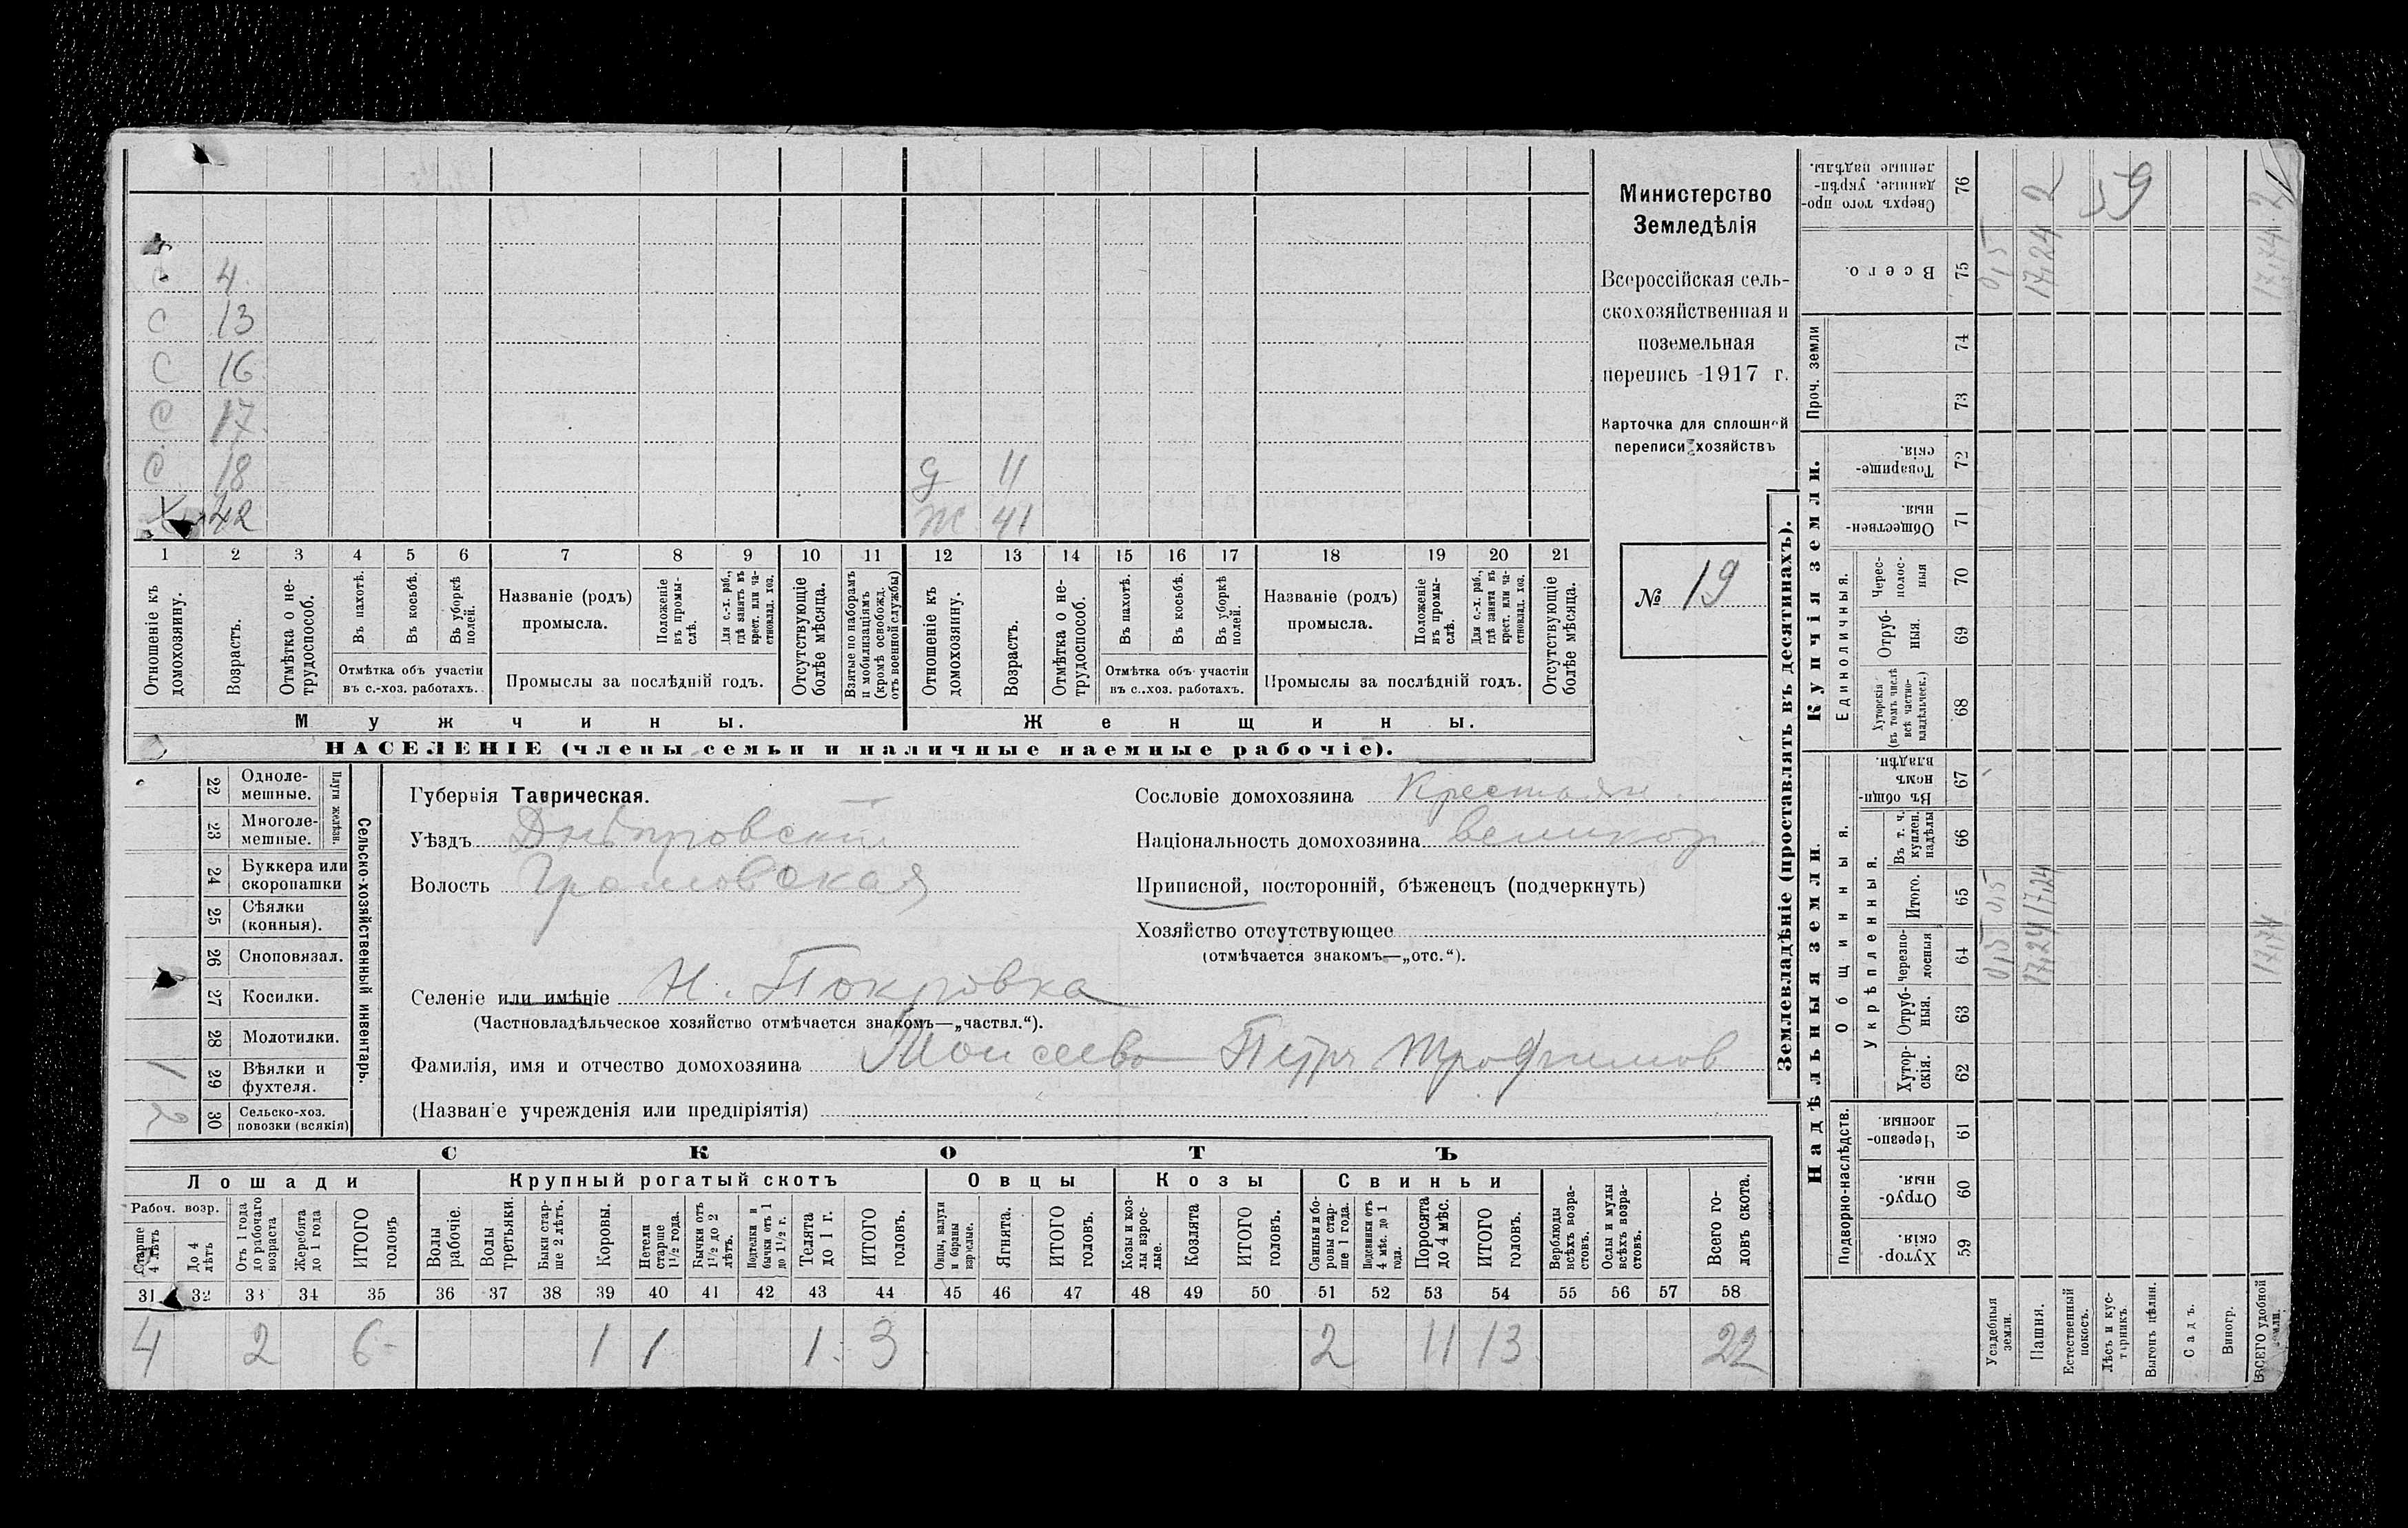 С 4
С 13
С 16
С 17
С 18 д 11
Х 42 ж 41
1 2 3 4 5 6 7 8 9 10 11 12 13 14 15 16 17 18 19 20 21
Отношеніе къ домохозяину.
Возрастъ.
Отмѣтка о не-трудоспособ.
Въ пахотѣ.
Въ косьбѣ.
Въ уборкѣ полей.
Отмѣтка объ участіи
въ с.-хоз. работахъ.
Названіе (родъ)
промысла.
Положеніе въ промы-слѣ.
Для с.-х. раб., гдѣ занятъ въ крест. или ча-стновлад. хоз.
Промыслы за послѣдній годъ.
Отсутствующіе болѣе мѣсяца.
Взятые по наборамъ и мобилизаціямъ (кромѣ освобожд. отъ военной службы)
Отношеніе къ домохозяину.
Возрастъ.
Отмѣтка о не-трудоспособ.
Въ пахотѣ.
Въ косьбѣ.
Въ уборкѣ полей.
Отмѣтка объ участіи
въ с.-хоз. работахъ.
Названіе (родъ)
промысла.
Положеніе въ промы-слѣ.
Для с.-х. раб., гдѣ занята въ крест. или ча-стновлад. хоз.
Промыслы за послѣдній годъ.
Отсутствующіе болѣе мѣсяца.
Мужчины. Женщины.
НАСЕЛЕНІЕ (члены семьи и наличные наемные рабочіе).
Министерство
Земледѣлія
Всероссійская сель-
скохозяйственная и
поземельная
перепись 1917 г.
Карточка для сплошной
переписи хозяйствъ
№ 19
Сельско-хозяйственный инвентарь.
Плуги желѣзн.
22 Одноле-мешные.
23 Многоле-мешные.
24 Буккера или скоропашки
25 Сѣялки (конныя).
26 Сноповязал.
27 Косилки.
28 Молотилки.
1 29 Вѣялки и фухтеля.
2 30 Сельско-хоз. повозки (всякія)
Губернія Таврическая.
Уѣздъ Днѣпровскій
Волость Громовская
Селеніе или имѣніе Н. Покровка
(Частновладѣльческое хозяйство отмѣчается знакомъ—„частвл.“).
Фамилія, имя и отчество домохозяина Моисеевъ Петръ Трофимов
(Названіе учрежденія или предпріятія)
Сословіе домохозяина Крестьян.
Національность домохозяина великор.
Приписной, посторонній, бѣженецъ (подчеркнуть)
Хозяйство отсутствующее
(отмѣчается знакомъ—„отс.“).
СКОТЪ
Лошади Крупный рогатый скотъ Овцы Козы Свиньи
Рабоч. возр.
Старше 4 лѣтъ
До 4 лѣтъ
Отъ 1 года до рабочаго возраста
Жеребята до 1 года
ИТОГО головъ
Волы рабочіе.
Волы третьяки.
Быки стар-ше 2 лѣтъ.
Коровы.
Нетели старше 1½ года.
Бычки отъ 1½ до 2 лѣтъ.
Подтелки и бычки отъ 1 до 1½ г.
Телята до 1 г.
ИТОГО головъ.
Овцы, валухи и бараны взрослые.
Ягнята.
ИТОГО головъ.
Козы и коз-лы взрос-лые.
Козлята
ИТОГО головъ.
Свиньи и бо-ровы стар-ше 1 года.
Подсвинки отъ 4 мѣс. до 1 года.
Поросята до 4 мѣс.
ИТОГО головъ.
Верблюды всѣхъ возра-стовъ.
Ослы и мулы всѣхъ возра-стовъ.
Всего го-ловъ скота.
31 32 33 34 35 36 37 38 39 40 41 42 43 44 45 46 47 48 49 50 51 52 53 54 55 56 57 58
4 2 6 1 1 1 3 2 11 13 22
Землевладѣніе (проставлять въ десятинахъ).
Надѣльныя земли. Купчія земли. Проч. земли
Подворно-наслѣдств. Общинныя. Единоличныя.
Укрѣпленныя.
Хутор-скія. 59
Отруб-ныя. 60
Черезпо-лосныя 61
Хутор-скія. 62
Отруб-ныя. 63
черезпо-лосныя 64
Итого. 65
Въ т. ч. куплен. надѣлы 66
Въ общи-номъ владѣн. 67
Хуторскія (въ томъ числѣ всѣ частно-владѣльческ.) 68
Отруб-ныя. 69
Черес-полос-ныя 70
Обществен-ныя. 71
Товарище-скія. 72
73
74
Всего. 75
Сверхъ того про-данные, укрѣп-ленные надѣлы. 76
Усадебныя земли. 0,5 0,5 0,5
Пашня. 17,24 17,24 17,24 2
Естественный покосъ.
Лѣсъ и кус-тарникъ. 59
Выгонъ цѣлин.
Садъ.
Виногр.
ВСЕГО удобной земли. 17,74 17,74 2